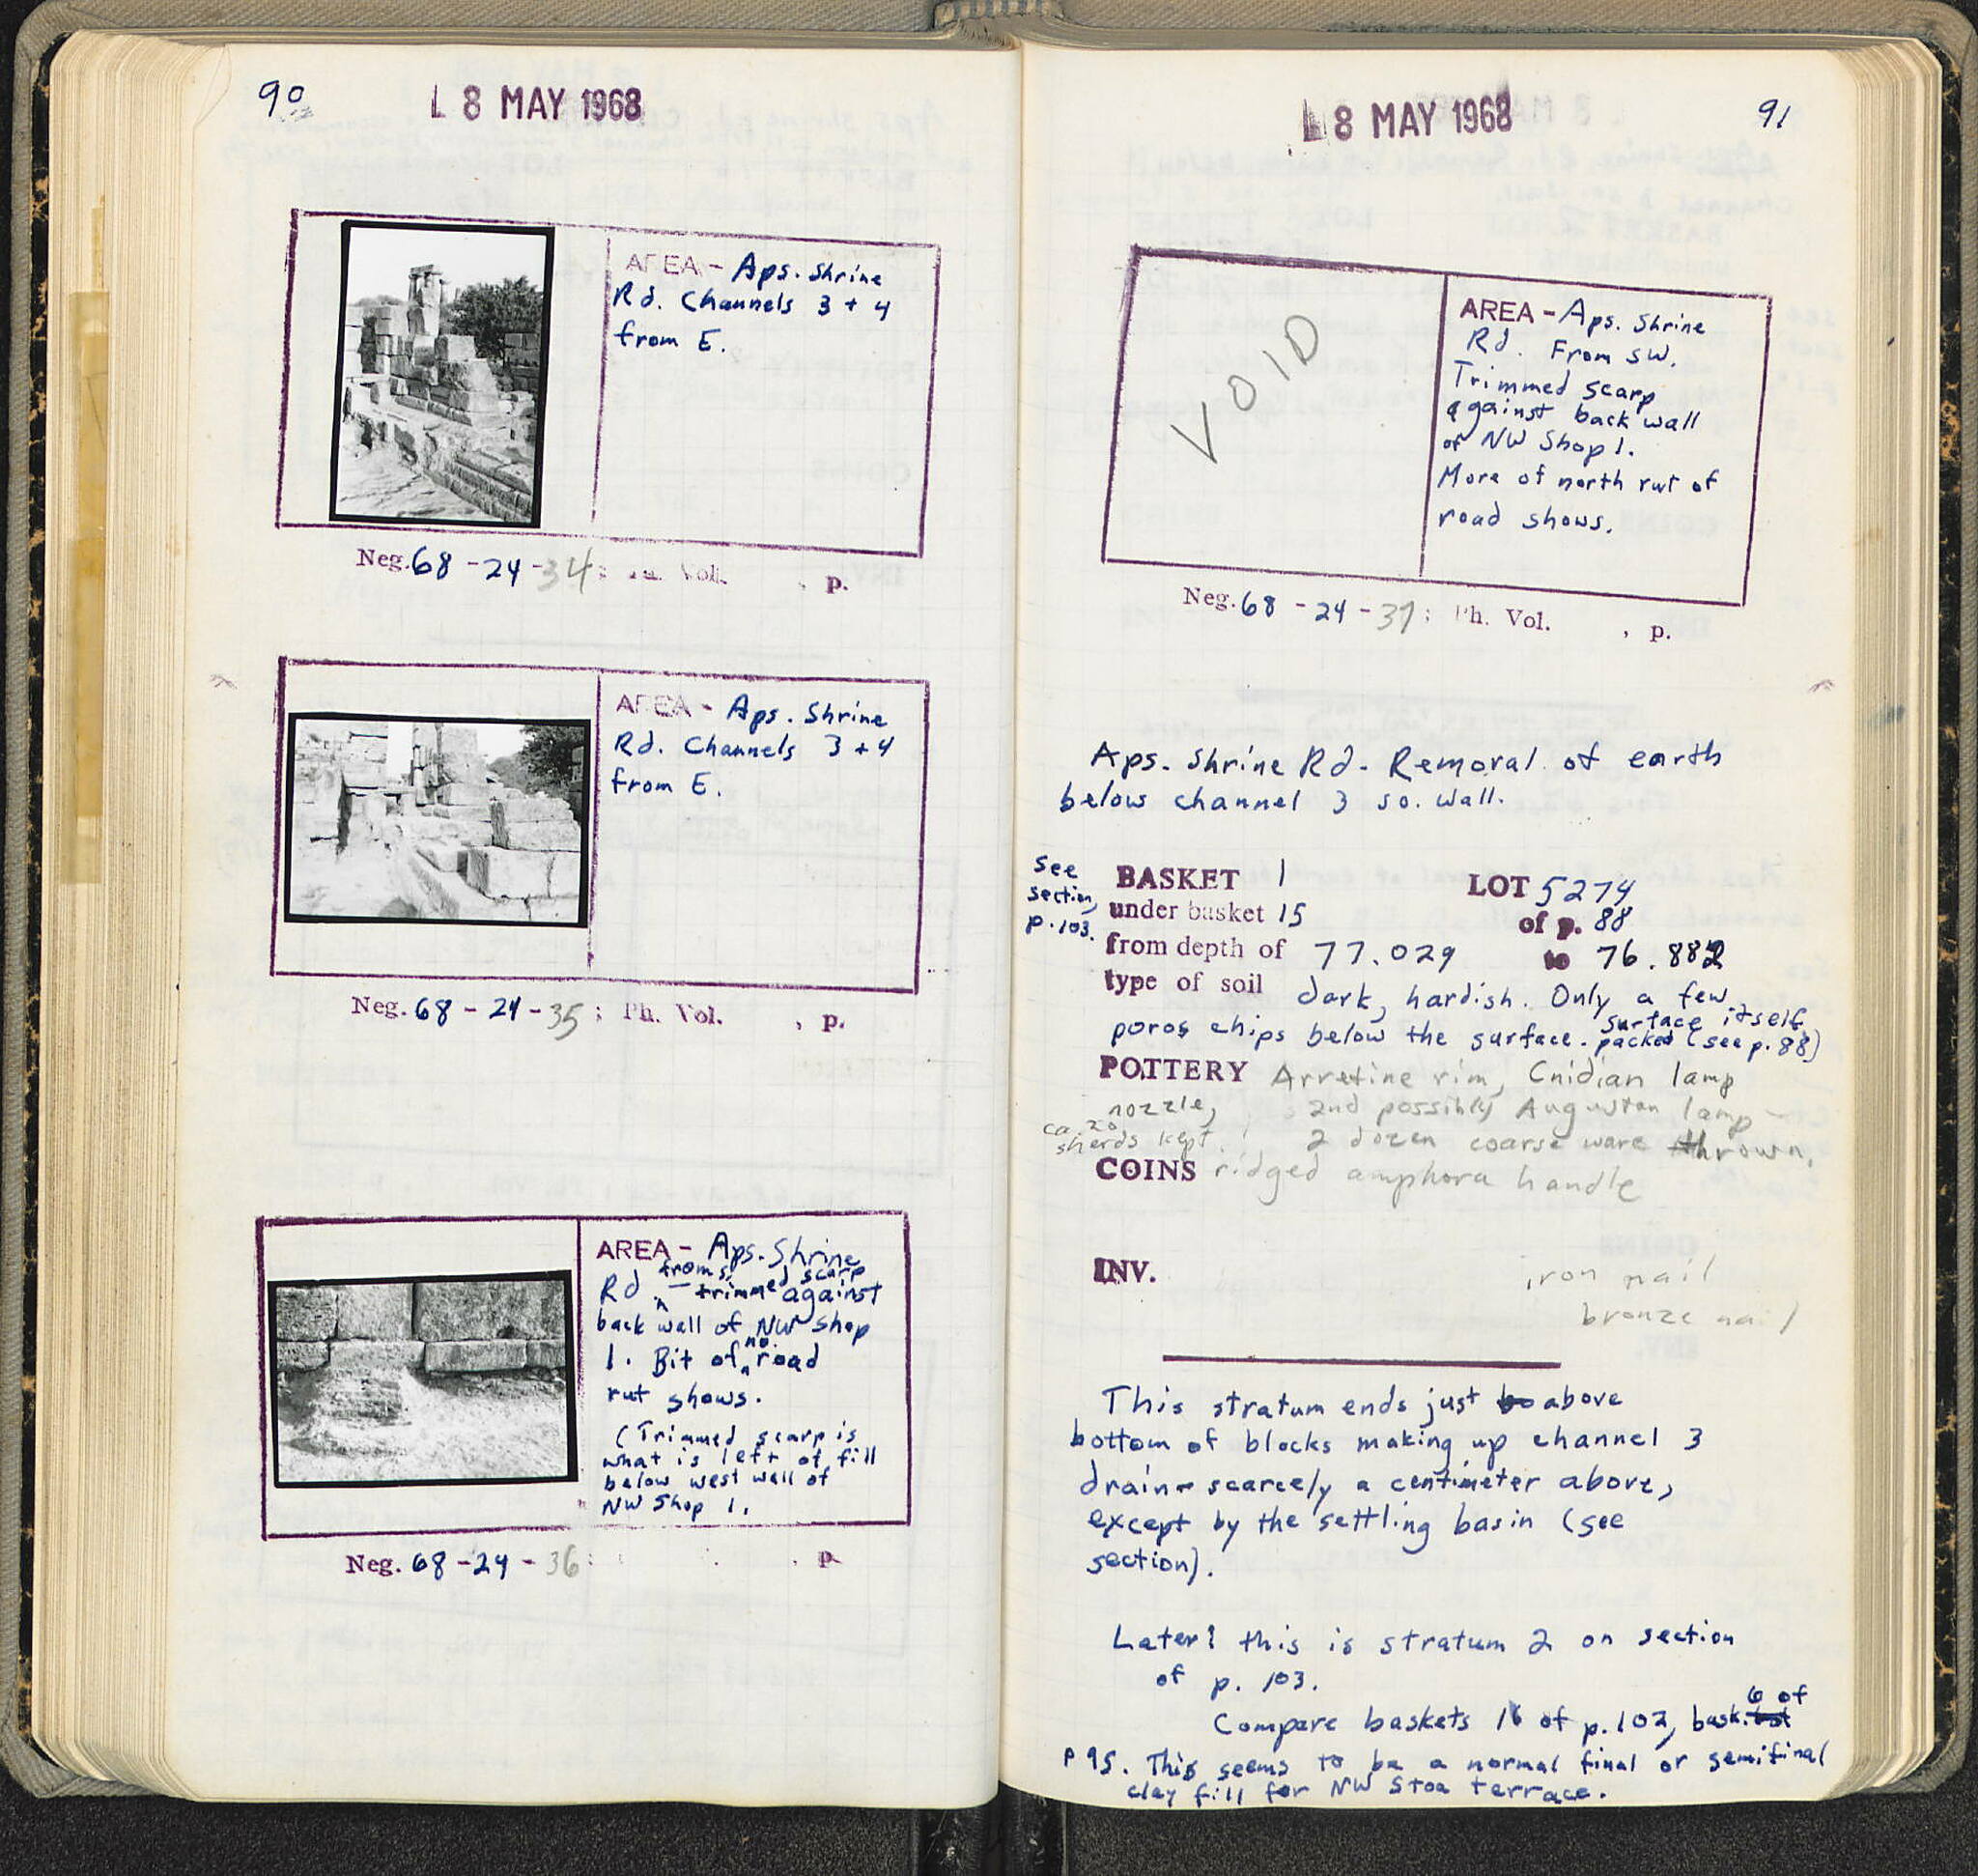 90
8 MAY 1968
AREA - Aps. Shrine
Rd. Channels 3 + 4
from E.
Neg. 68 - 24 - 34 ; Vol. , p.
AREA - Aps. Shrine
Rd. Channels 3 + 4
from E.
Neg. 68 - 24 - 35 ; Ph. Vol. , p.
AREA - Aps. Shrine
from S.
Rd. - trimmed scarp against
back wall of NW Shop
1. Bit of no. road
rut shows.
(Trimmed scarp is
what is left of fill
below west wall of
NW Shop 1.
Neg. 68 - 24 - 36 : . p.
8 MAY 1968
91
VOID
AREA - Aps. Shrine
Rd. From SW.
Trimmed scarp
against back wall
of NW Shop 1.
More of north rut of
road shows.
Neg. 68 - 24 - 37 ; Ph. Vol. , p.
Aps. Shrine Rd - Removal of earth
below channel 3 so. wall.
see
section,
p. 103.
BASKET 1 LOT 5274
under basket 15 of p. 88
from depth of 77.029 to 76.882
type of soil dark, hardish. Only a few
poros chips below the surface. surface itself
packed (see p. 88)
POTTERY Arretine rim, Cnidian lamp
nozzle, 2nd possibly Augustan lamp -
ca. 20
sherds kept. 2 dozen coarse ware thrown,
COINS ridged amphora handle
INV. iron nail
bronze nail
This stratum ends just bo above
bottom of blocks making up channel 3
drain - scarcely a centimeter above,
except by the settling basin (see
section).
Later: this is stratum 2 on section
of p. 103.
Compare baskets 16 of p. 102, bask. 6 of
p 95. This seems to be a normal final or semifinal
clay fill for NW Stoa terrace.